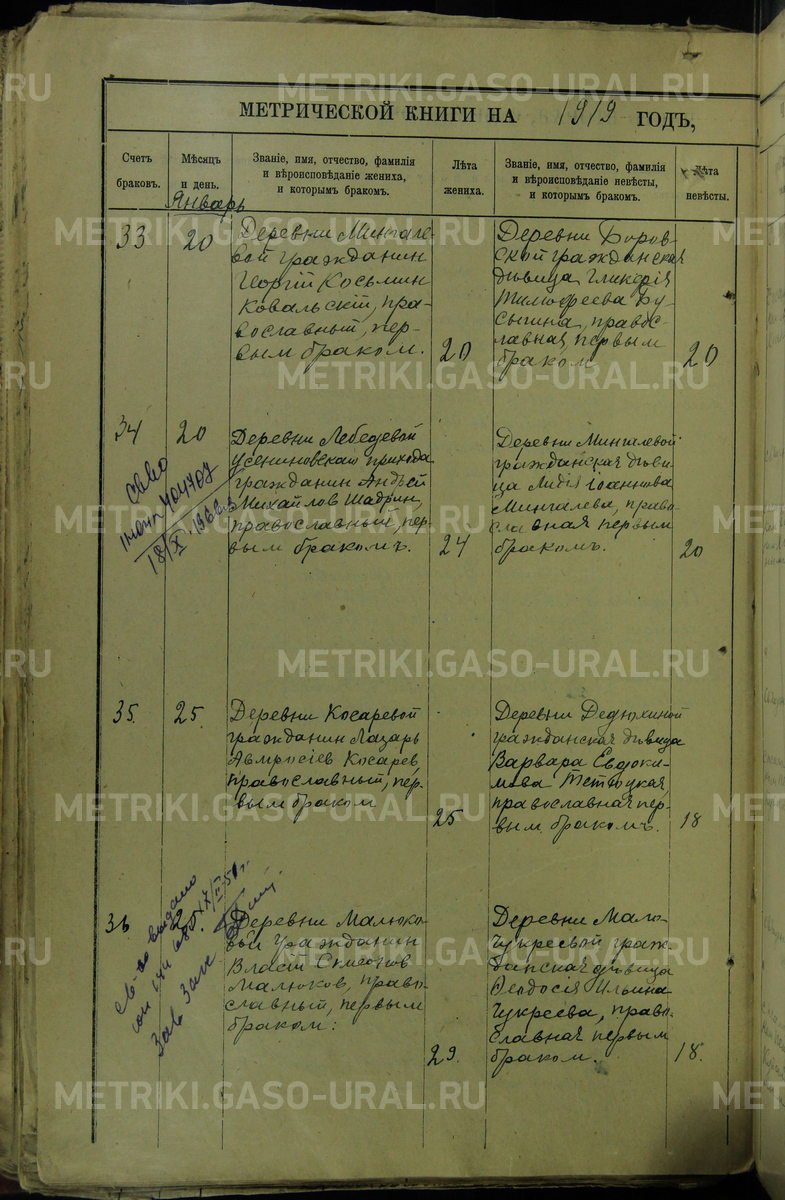 МЕТРИЧЕСКОЙ КНИГИ НА 1919 ГОДЪ,
Счетъ браковъ.
Мѣсяцъ и день.
Званіе, имя, отчество, фамилія
и вѣроисповѣданіе жениха,
и которымъ бракомъ.
Лѣта
жениха.
Званіе, имя, отчество, фамилія
и вѣроисповѣданіе невѣсты,
и которымъ бракомъ.
Лѣта
невѣсты.
Январь
33
20
Деревни Мингале-
вой гражданин
Георгій Косьмин
Ковальскій, пра-
вославный, пер-
вым браком.
20
Деревни Боров-
ской гражданская
дѣвица Гликерія
Тимофеева Бу-
сыгина, правос-
лавная первым
браком
20
34
20
Деревни Лебедевой
Усениновскаго прихода
гражданин Андрей
Михайлов Шадрин,
православный, пер-
вым бракомъ.
24
Деревни Мингалевой
гражданская дѣви-
ца Лидія Іоаннова
Мингалева, право-
славная первым
бракомъ.
20
18/XI 1966 г.
35.
25.
Деревни Косаревой
гражданин Лазарь
Амвросіев Косарев,
православный, пер-
вым браком
25
Деревни Дедюхиной
гражданская дѣвица
Варвара Евдоки-
мова
православная пер-
вым бракомъ.
18
36
25.
Деревни Малюко-
вой гражданин
Власій Симеонов
Малюков, право-
славный, первым
браком:
29.
Деревни Мало-
Чукреевой граж-
данская дѣвица
Ѳеодосія Ильина
Чукреева, право-
славная первым
браком.
18.
METRIKI.GASO-URAL.RU